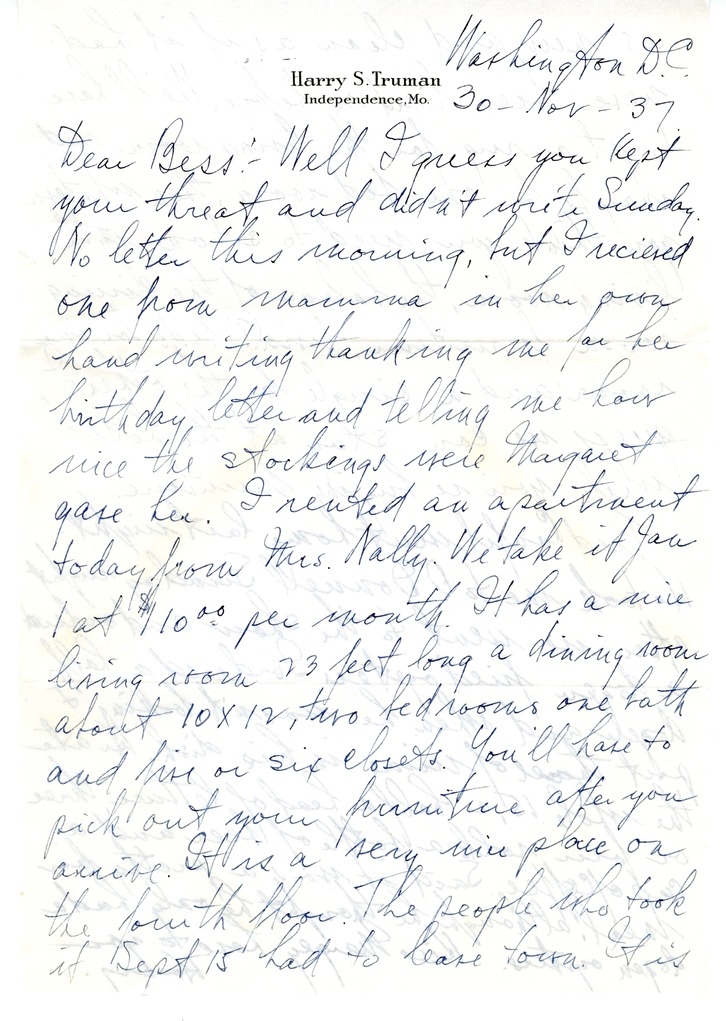 Washington D.C.
Harry S. Truman
Independence, Mo.
30 - Nov - 37
Dear Bess:- Well I guess you kept
your threat and didn't write Sunday.
No letter this morning, but I recieved
one from mamma in her own
hand writing thanking me for her
birthday letter and telling me how
nice the stockings were Margaret
gave her. I rented an apartment
today from Mrs. Nally. We take it Jan
1 at $110 00 per month. It has a nice
living room 23 feet long a dining room
about 10X12, two bedrooms one bath
and five or six closets. You'll have to
pick out your furniture after you
arrive. It is a very nice place on
the fourth floor. The people who took
it Sept 15 had to leave town. It is